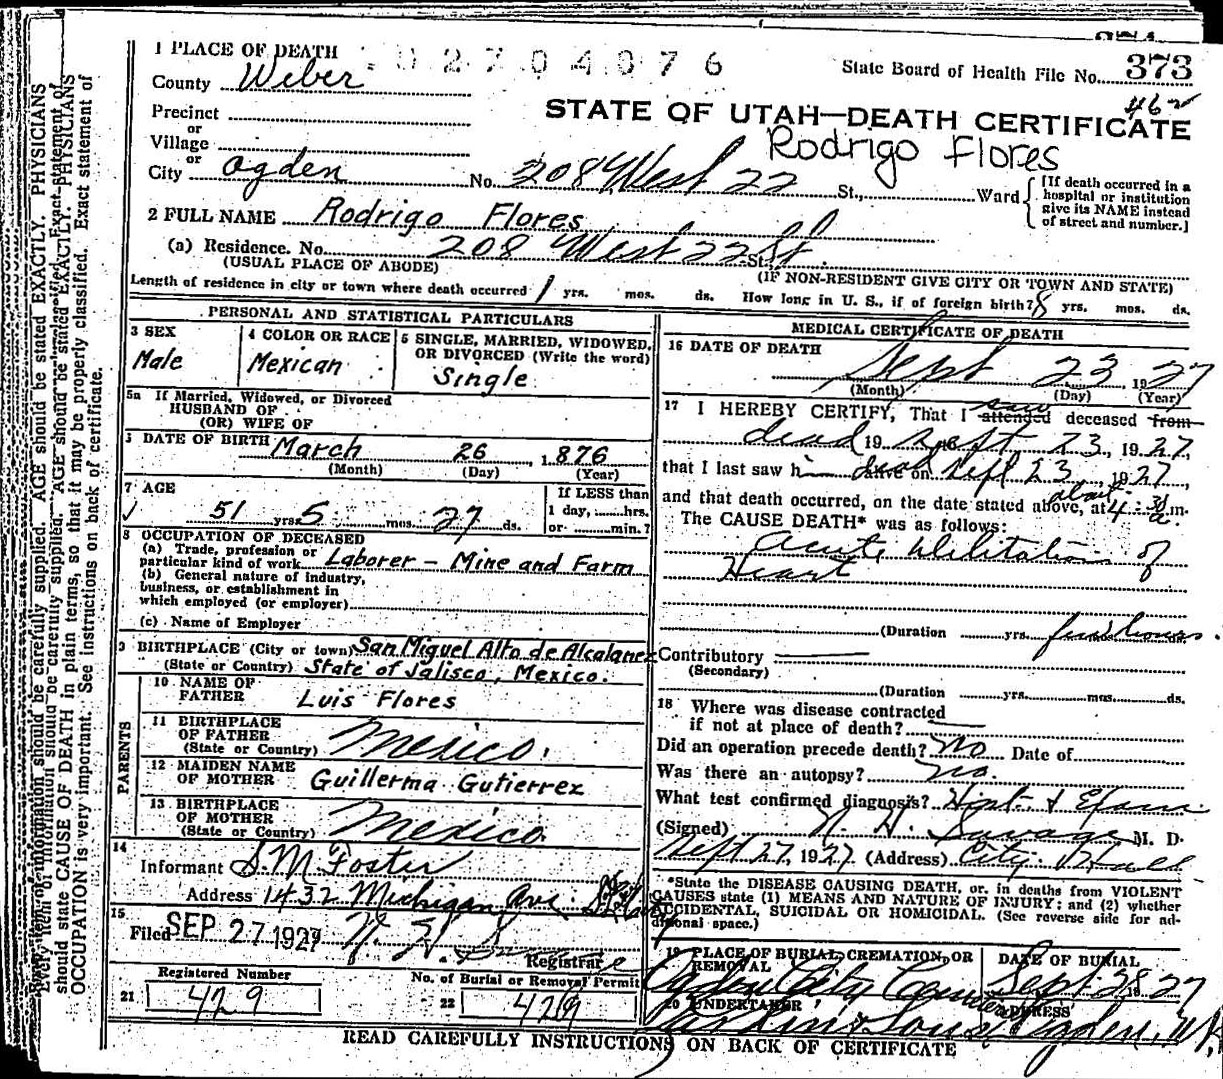 1 PLACE OF DEATH 02704076
State Board of Health File No. 373
County Weber
462
STATE OF UTAH—DEATH CERTIFICATE
Precinct
or
Village
Rodrigo Flores
or
City Ogden No. 208 West 22 St., Ward
[If death occurred in a
hospital or institution
give its NAME instead
of street and number.]
2 FULL NAME Rodrigo Flores
(a) Residence. No. 208 West 22 St St.,
(USUAL PLACE OF ABODE)
(IF NON-RESIDENT GIVE CITY OR TOWN AND STATE)
Length of residence in city or town where death occurred 1 yrs. mos. ds. How long in U. S., if of foreign birth? 8 yrs. mos. ds.
PERSONAL AND STATISTICAL PARTICULARS
3 SEX
Male
4 COLOR OR RACE
Mexican
5 SINGLE, MARRIED, WIDOWED,
OR DIVORCED (Write the word)
Single
5a If Married, Widowed, or Divorced
HUSBAND OF
(OR) WIFE OF
DATE OF BIRTH March 26, 1876
(Month) (Day) (Year)
7 AGE
51 yrs. 5 mos. 27 ds.
If LESS than
1 day, hrs.
or min.?
8 OCCUPATION OF DECEASED
(a) Trade, profession or
particular kind of work Laborer - Mine and Farm
(b) General nature of industry,
business, or establishment in
which employed (or employer)
(c) Name of Employer
9 BIRTHPLACE (City or town) San Miguel Alto de Alcalanez
(State or Country) State of Jalisco, Mexico.
PARENTS
10 NAME OF
FATHER Luis Flores
11 BIRTHPLACE
OF FATHER
(State or Country) Mexico.
12 MAIDEN NAME
OF MOTHER Guillerma Gutierrez
13 BIRTHPLACE
OF MOTHER
(State or Country) Mexico
14
Informant S. M. Foster
Address 1432 Michigan Ave.
15
Filed SEP 27 1927
Registrar
Registered Number
21 429
No. of Burial or Removal Permit
22 429
MEDICAL CERTIFICATE OF DEATH
16 DATE OF DEATH
Sept 23 1927
(Month) (Day) (Year)
17 I HEREBY CERTIFY, That I attended saw deceased from
dead 19 Sept 23, 1927,
that I last saw him alive on Sept 23, 1927,
and that death occurred, on the date stated above, at about 4:30 a.m.
The CAUSE DEATH* was as follows:
Acute Dilitation of
Heart
(Duration yrs. few hours.
Contributory
(Secondary)
(Duration yrs. mos. ds.
18 Where was disease contracted
if not at place of death?
Did an operation precede death? No Date of
Was there an autopsy? No.
What test confirmed diagnosis? Hist. & Exam
(Signed) N. H. Savage M. D.
Sept 27, 1927 (Address) City Hall
*State the DISEASE CAUSING DEATH, or, in deaths from VIOLENT
CAUSES state (1) MEANS AND NATURE OF INJURY: and (2) whether
ACCIDENTAL, SUICIDAL OR HOMICIDAL. (See reverse side for ad-
ditional space.)
19 PLACE OF BURIAL, CREMATION, OR
REMOVAL
Ogden City Cemetery
DATE OF BURIAL
Sept 28 1927
20 UNDERTAKER
ADDRESS
Larkin & Sons Ogden, Ut.
READ CAREFULLY INSTRUCTIONS ON BACK OF CERTIFICATE
should state CAUSE OF DEATH in plain terms, so that it may be properly classified. Exact statement of
OCCUPATION is very important. See instructions on back of certificate.